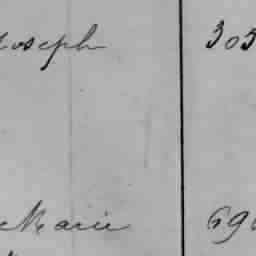 Joseph 303
Marie 69